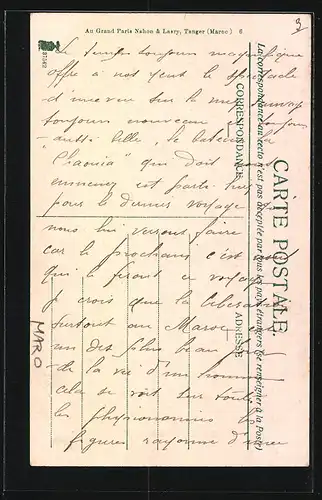 Au Grand Paris Nahon & Lasry, Tanger (Maroc)   6
3
37582
Le temps toujours magnifique
offre à nos yeux le spectacle
d'une vue sur la mer
toujours nouveau toujours
aussi belle, le bateau la
"Chaouia" qui doit nous
emmener est parti
pour le dernier voyage
nous lui verrons faire
car le prochain c'est nous
qui le ferons ce voyage
je crois que la libération
surtout au Maroc
un des plus beau jour
de la vie d'un homme
cela se voit sur toutes
les physionomies les
figures rayonne d'une
CARTE POSTALE
La correspondance au recto n'est pas acceptée par tous les pays étrangers (se renseigner à la Poste)
CORRESPONDANCE
ADRESSE
MARO